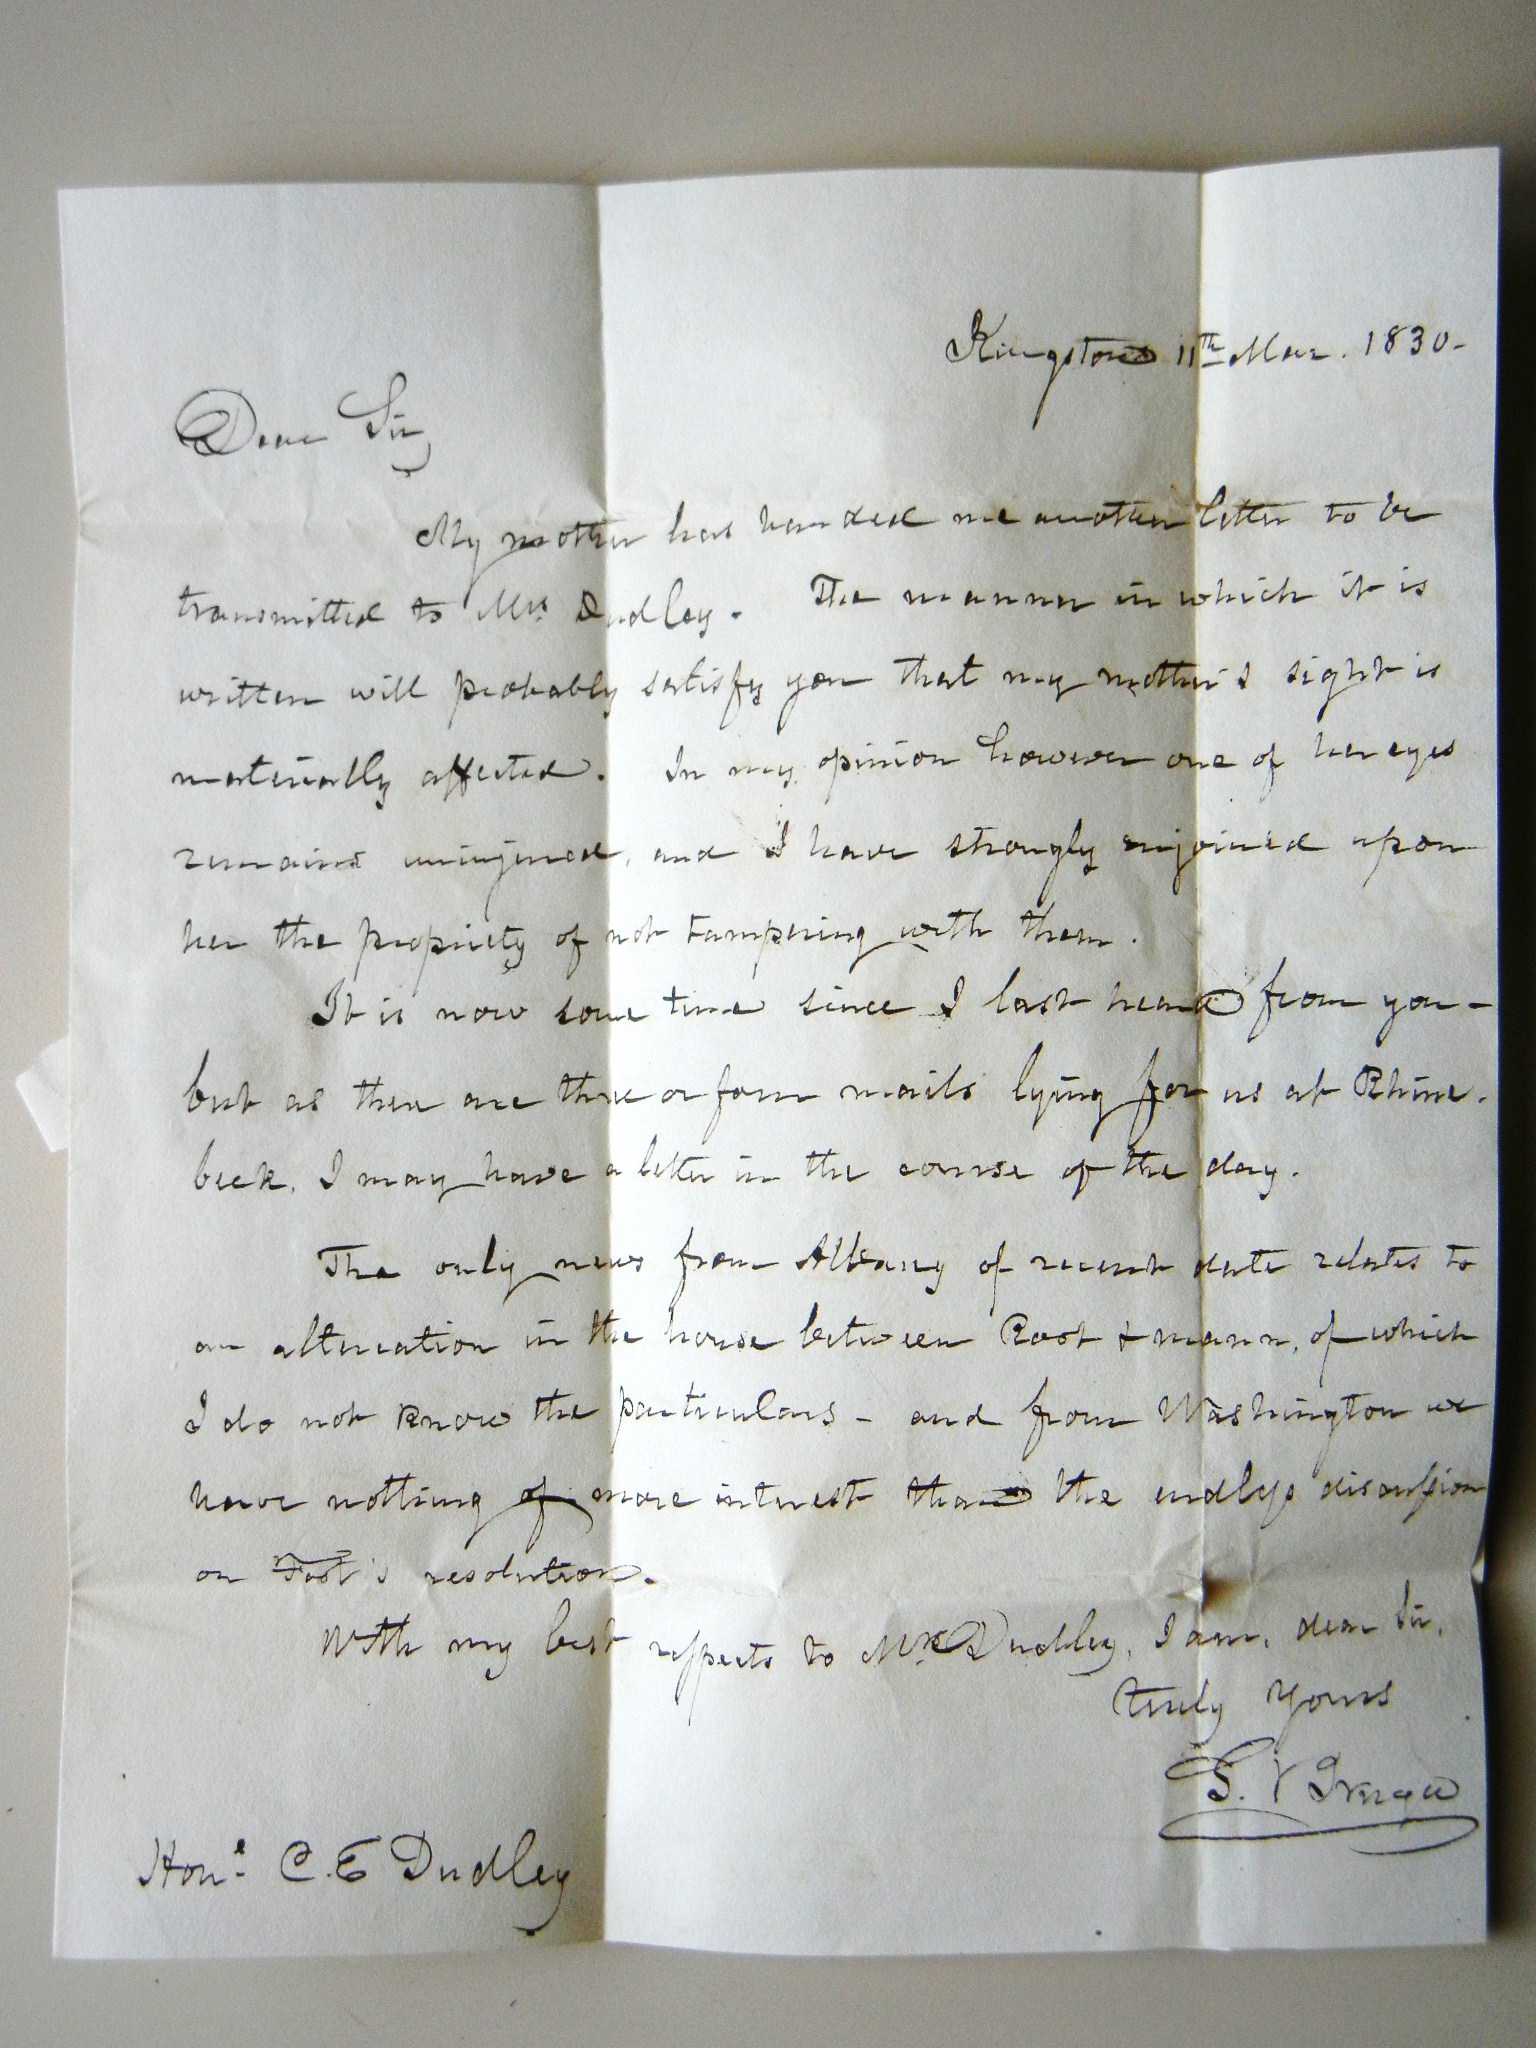 Kingston 11th Mar. 1830-
Dear Sir,
My mother has handed me another letter to be
transmitted to Mrs. Dudley. The manner in which it is
written will probably satisfy you that my mother's sight is
materially affected. In my opinion however one of her eyes
remains uninjured, and I have strongly enjoined upon
her the propriety of not tampering with them.
It is now some time since I last heard from you -
but as there are three or four mails lying for us at Rhine-
beck, I may have a letter in the course of the day.
The only news from Albany of recent date relates to
an altercation in the house between Root & Mann, of which
I do not know the particulars - and from Washington we
have nothing of more interest than the endless discussion
on Foot's resolution.
With my best respects to Mrs Dudley, I am, dear Sir,
truly yours
Hone. C. E Dudley